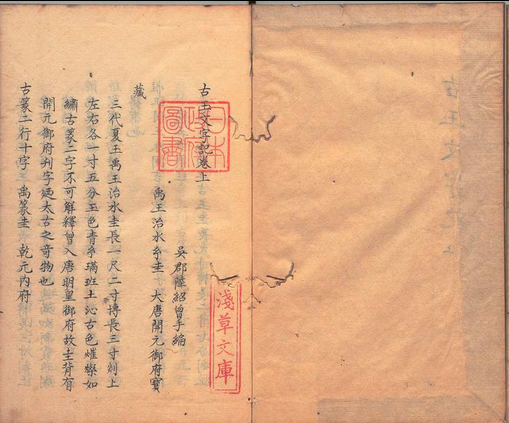 古玉文字記卷上
日本
政府
圖書
吳郡陸紹曾手編
淺草文庫
禹王治水玄圭 大唐開元御府寶
藏
三代夏王禹王治水圭長一尺二寸博長三寸剡上
左右各一寸五分玉色青玄璊班土沁古色熣燦如
繡古篆二字不可解釋曾入唐明皇御府故圭背有
開元御府刋字廼太古之奇物也
古篆二行十字 禹篆圭 乾元内府